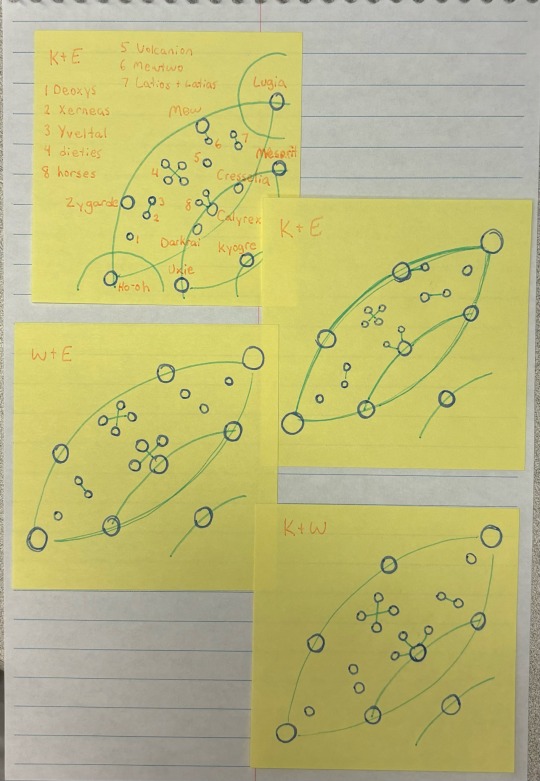 K+E
5 Volcanion
6 Mewtwo
7 Latios + Latias
1 Deoxys
2 Xerneas
3 Yveltal
4 dieties
8 horses
Lugia
Mew
6
7
5
Mesprit
4
Cresselia
Zygarde
3
2
8
Calyrex
1
Darkrai
Kyogre
Uxie
Ho-oh
K+E
W+E
K+W